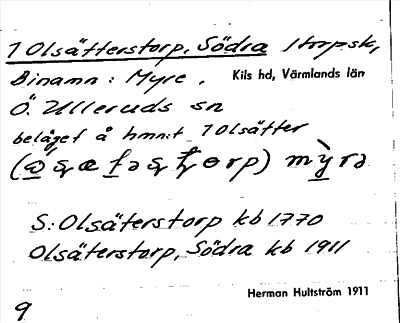 1 Olsätterstorp, Södra 1 torpsk,
Binamn: Myre.
Kils hd, Värmlands län
Ö. Ulleruds sn
beläget å hmn:t 1 Olsätter
mỳrə
S: Olsäterstorp kb 1770
Olsäterstorp, Södra kb 1911
Herman Hultström 1911
9